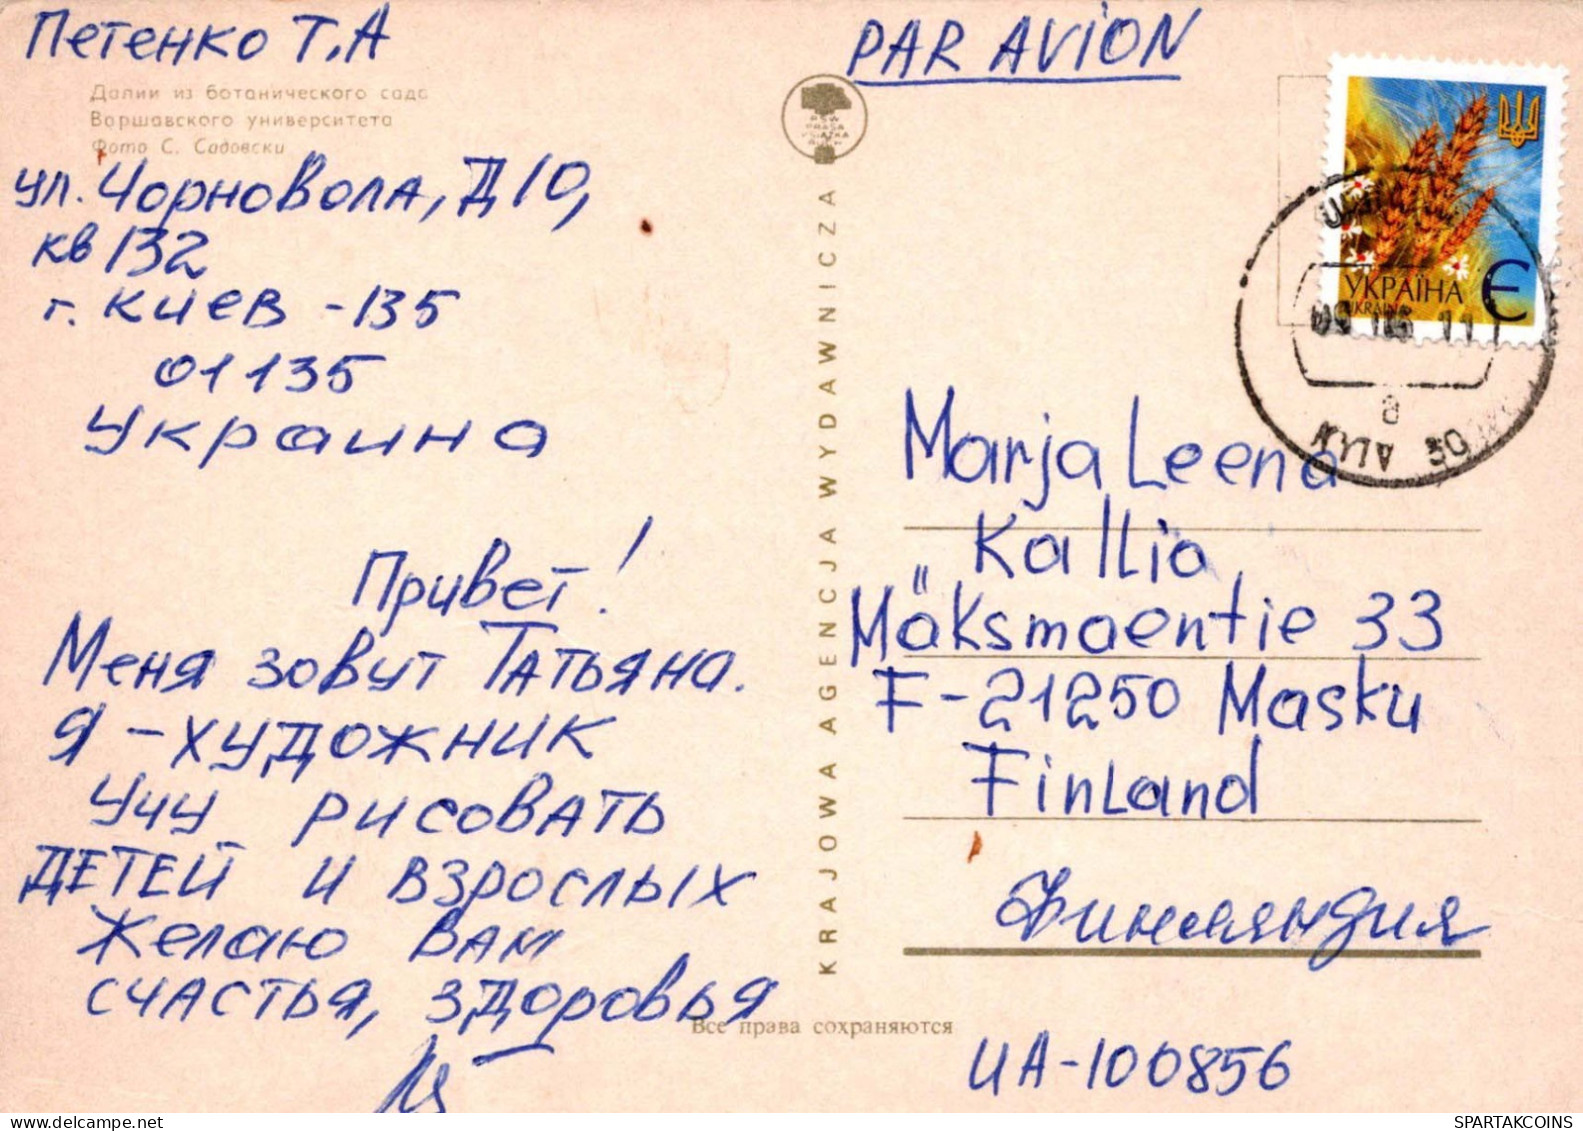 Петенко Т.А
Далии из ботанического сада
Варшавского университета
Фото С. Садовски
ул. Чорновола, Д 10,
кв 132
г. Киев - 135
01135
Украина
Привет!
Меня зовут Татьяна.
Я - художник
учу рисовать
ДЕТЕЙ и взрослых
Желаю вам
счастья, здоровья
KRAJOWA AGENCJA WYDAWNICZA
PSW
PRASA
KSIĄŻKA
RUCH
Все права сохраняются
PAR AVION
УКРАЇНА
UKRAINE
Є
09 11
a
KYIV 50
Marja Leena
Kallio
Mäksmäentie 33
F-21250 Masku
Finland
Финляндия
UA-100856
SPARTAKCOINS